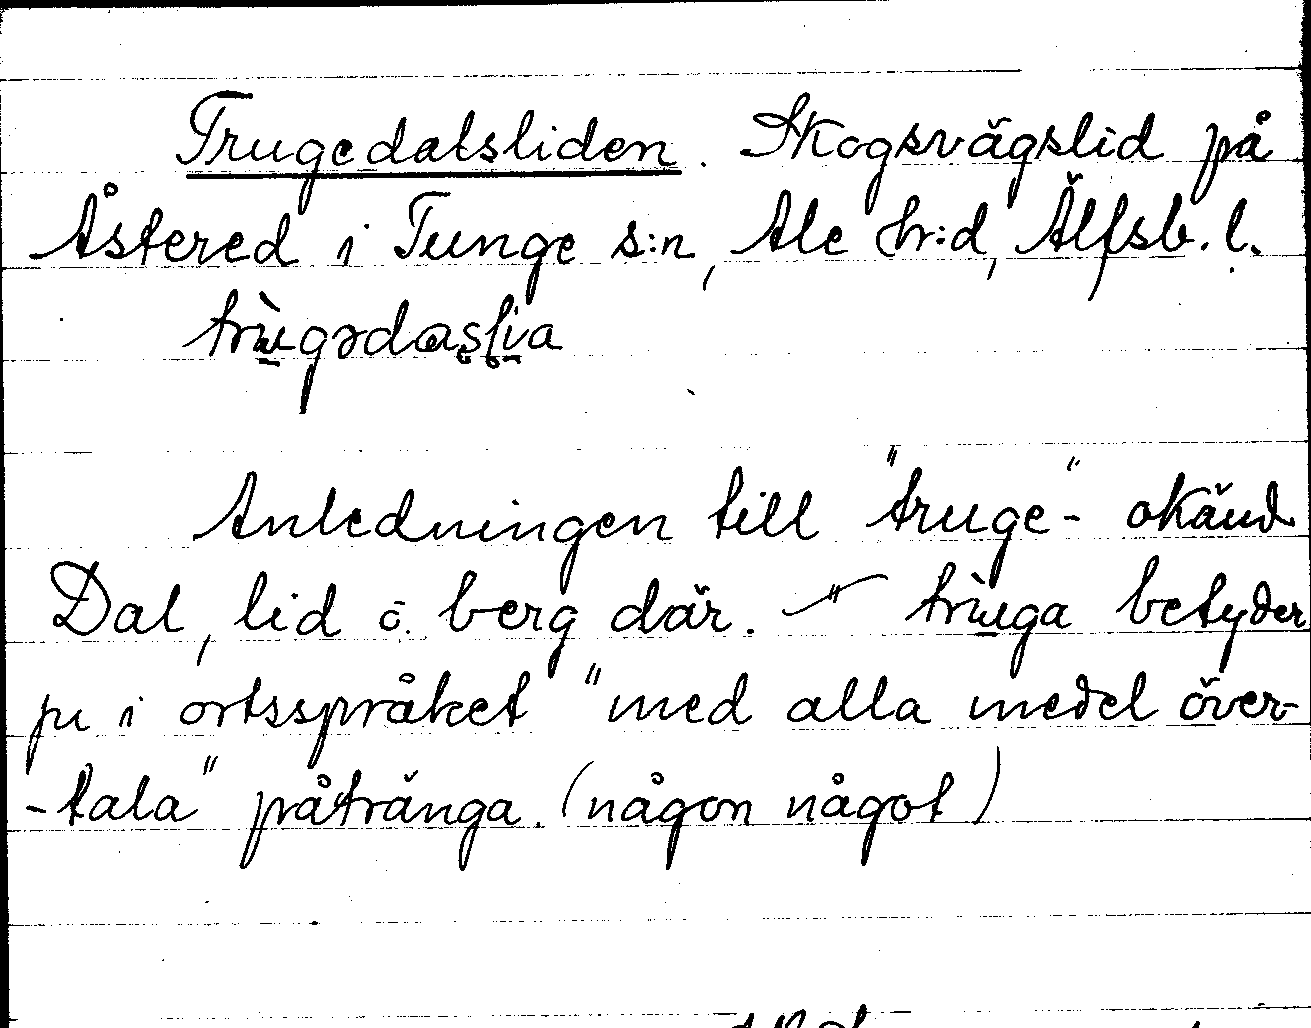 Trugedalsliden. Skogsvägslid på
Åstered i Tunge s:n, Ale hr:d, Älfsb. l.
trùgədas̥l̥i̱a
Anledningen till "truge-" okänd
Dal, lid o. berg där. — " — trùga betyder
ju i ortsspråket "med alla medel över-
-tala" påtränga. (någon något)